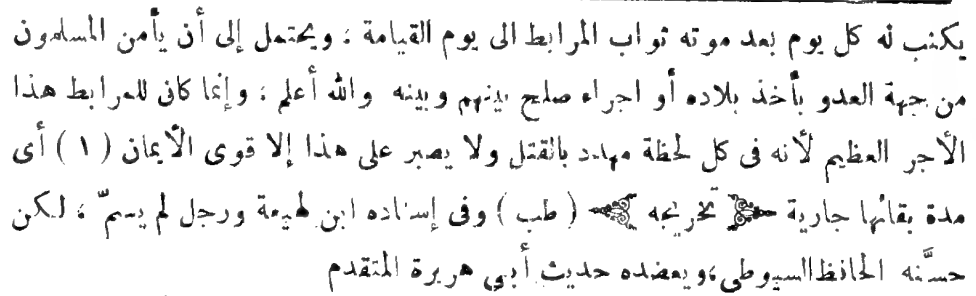 يكتب له كل يوم بعد موته ثواب المرابط الى يوم القيامة ، ويحتمل إلى أن يأمن المسلمون
من جهة العدو بأخذ بلاده أو اجراء صلح بينهم وبينه والله أعلم ، وإنما كان للمرابط هذا
الأجر العظيم لأنه فى كل لحظة مهدد بالقتل ولا يصبر على هذا إلا قوى الأيمان ( ١ ) أى
مدة بقائها جارية تخريجه ( طب ) وفى إسناده ابن لهيعة ورجل لم يسمّ ، لكن
حسَّنه الحافظ السيوطى ، ويعضده حديث أبى هريرة المتقدم